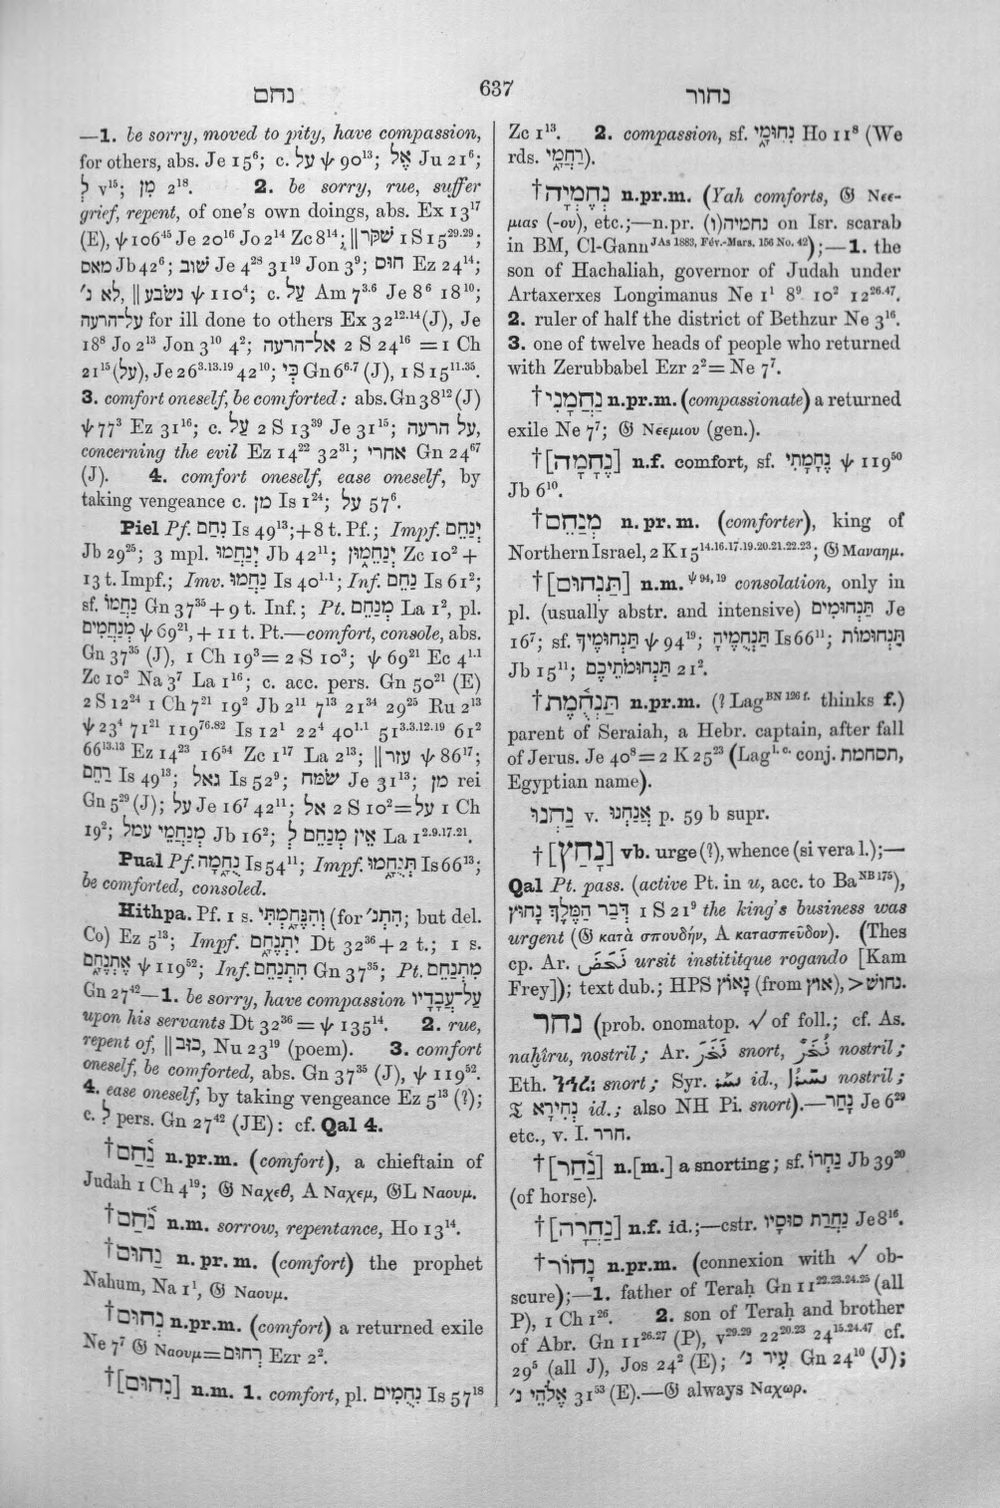 נחם
637
נחור
—1. be sorry, moved to pity, have compassion,
for others, abs. Je 15⁶; c. על ψ 90¹³; אֶל Ju 21⁶;
לְ v¹⁵; מִן 2¹⁸. 2. be sorry, rue, suffer
grief, repent, of one's own doings, abs. Ex 13¹⁷
(E), ψ 106⁴⁵ Je 20¹⁶ Jo 2¹⁴ Zc 8¹⁴; ‖ שׁקר 1 S 15²⁹·²⁹;
מאס Jb 42⁶; שׁוּב Je 4²⁸ 31¹⁹ Jon 3⁹; חוס Ez 24¹⁴;
לא נ׳, ‖ נשׁבע ψ 110⁴; c. עַל Am 7³·⁶ Je 8⁶ 18¹⁰;
על־הרעה for ill done to others Ex 32¹²·¹⁴ (J), Je
18⁸ Jo 2¹³ Jon 3¹⁰ 4²; אל־הרעה 2 S 24¹⁶ = 1 Ch
21¹⁵ (על), Je 26³·¹³·¹⁹ 42¹⁰; כִּי Gn 6⁶·⁷ (J), 1 S 15¹¹·³⁵.
3. comfort oneself, be comforted: abs. Gn 38¹² (J)
ψ 77³ Ez 31¹⁶; c. עַל 2 S 13³⁹ Je 31¹⁵; על הרעה,
concerning the evil Ez 14²² 32³¹; אחרי Gn 24⁶⁷
(J). 4. comfort oneself, ease oneself, by
taking vengeance c. מִן Is 1²⁴; על 57⁶.
Piel Pf. נִחַם Is 49¹³; + 8 t. Pf.; Impf. יְנַחֵם
Jb 29²⁵; 3 mpl. יְנַחֲמוּ Jb 42¹¹; יְנַחֵמוּן Zc 10² +
13 t. Impf.; Imv. נַחֲמוּ Is 40¹·¹; Inf. נַחֵם Is 61²;
sf. נַחֲמוֹ Gn 37³⁵ + 9 t. Inf.; Pt. מְנַחֵם La 1², pl.
מְנַחֲמִים ψ 69²¹, + 11 t. Pt.—comfort, console, abs.
Gn 37³⁵ (J), 1 Ch 19³ = 2 S 10³; ψ 69²¹ Ec 4¹·¹
Zc 10² Na 3⁷ La 1¹⁶; c. acc. pers. Gn 50²¹ (E)
2 S 12²⁴ 1 Ch 7²¹ 19² Jb 2¹¹ 7¹³ 21³⁴ 29²⁵ Ru 2¹³
ψ 23⁴ 71²¹ 119⁷⁶·⁸² Is 12¹ 22⁴ 40¹·¹ 51³·³·¹²·¹⁹ 61²
66¹³·¹³ Ez 14²³ 16⁵⁴ Zc 1¹⁷ La 2¹³; ‖ עזר ψ 86¹⁷;
רִחַם Is 49¹³; גאל Is 52⁹; שׂמּח Je 31¹³; מִן rei
Gn 5²⁹ (J); עַל Je 16⁷ 42¹¹; אל 2 S 10² = על 1 Ch
19²; מְנַחֲמֵי עמל Jb 16²; אֵין מְנַחֵם לְ La 1²·⁹·¹⁷·²¹.
Pual Pf. נֻחָ֑מָה Is 54¹¹; Impf. תְּנֻחָ֑מוּ Is 66¹³;
be comforted, consoled.
Hithpa. Pf. 1 s. וְהִנֶּחָ֑מְתִּי (for הִתְנ׳; but del.
Co) Ez 5¹³; Impf. יִתְנֶחָ֑ם Dt 32³⁶ + 2 t.; 1 s.
אֶתְנֶחָ֑ם ψ 119⁵²; Inf. הִתְנַחֵם Gn 37³⁵; Pt. מִתְנַחֵם
Gn 27⁴²—1. be sorry, have compassion עַל־עֲבָדָיו
upon his servants Dt 32³⁶ = ψ 135¹⁴. 2. rue,
repent of, ‖ כזב, Nu 23¹⁹ (poem). 3. comfort
oneself, be comforted, abs. Gn 37³⁵ (J), ψ 119⁵².
4. ease oneself, by taking vengeance Ez 5¹³ (?);
c. לְ pers. Gn 27⁴² (JE): cf. Qal 4.
†נַ֫חַם n.pr.m. (comfort), a chieftain of
Judah 1 Ch 4¹⁹; 𝔊 Ναχεθ, A Ναχεμ, 𝔊L Ναουμ.
†נֹ֫חַם n.m. sorrow, repentance, Ho 13¹⁴.
†נַחוּם n. pr. m. (comfort) the prophet
Nahum, Na 1¹, 𝔊 Ναουμ.
†נְחוּם n.pr.m. (comfort) a returned exile
Ne 7⁷ 𝔊 Ναουμ = רְחוּם Ezr 2².
†[נִחוּם] n.m. 1. comfort, pl. נִחֻמִים Is 57¹⁸
Zc 1¹³. 2. compassion, sf. נִחוּמָ֑י Ho 11⁸ (We
rds. רַחֲמָ֑י).
†נְחֶמְיָה n.pr.m. (Yah comforts, 𝔊 Νεε-
μιας (-ου), etc.;—n.pr. נחמיה(ו) on Isr. scarab
in BM, Cl-Gann JAs 1883, Fév.-Mars. 156 No. 42);—1. the
son of Hachaliah, governor of Judah under
Artaxerxes Longimanus Ne 1¹ 8⁹ 10² 12²⁶·⁴⁷.
2. ruler of half the district of Bethzur Ne 3¹⁶.
3. one of twelve heads of people who returned
with Zerubbabel Ezr 2² = Ne 7⁷.
†נַחֲמָנִי n.pr.m. (compassionate) a returned
exile Ne 7⁷; 𝔊 Νεεμιου (gen.).
†[נֶחָמָה] n.f. comfort, sf. נֶחָמָתִי ψ 119⁵⁰
Jb 6¹⁰.
†מְנַחֵם n. pr. m. (comforter), king of
Northern Israel, 2 K 15¹⁴·¹⁶·¹⁷·¹⁹·²⁰·²¹·²²·²³; 𝔊 Μαναημ.
†[תַּנְחוּם] n.m. ψ 94, 19 consolation, only in
pl. (usually abstr. and intensive) תַּנְחוּמִים Je
16⁷; sf. תַּנְחוּמֶיךָ ψ 94¹⁹; תַּנְחֻמֶיהָ Is 66¹¹; תַּנְחוּמוֹת
Jb 15¹¹; תַּנְחוּמֹתֵיכֶם 21².
†תַּנְחֻ֫מֶת n.pr.m. (? Lag BN 126 f. thinks f.)
parent of Seraiah, a Hebr. captain, after fall
of Jerus. Je 40⁸ = 2 K 25²³ (Lag l. c. conj. תחמחס,
Egyptian name).
נַחְנוּ v. אֲנַחְנוּ p. 59 b supr.
†[נָחַץ] vb. urge (?), whence (si vera l.);—
Qal Pt. pass. (active Pt. in u, acc. to Ba NB 175),
דְּבַר הַמֶּלֶךְ נָחוּץ 1 S 21⁹ the king's business was
urgent (𝔊 κατὰ σπουδήν, A κατασπεῦδον). (Thes
cp. Ar. نَخَضَ ursit instititque rogando [Kam
Frey]); text dub.; HPS נָאוֹץ (from אוץ), > נחוּשׁ.
נחר (prob. onomatop. √ of foll.; cf. As.
naḫîru, nostril; Ar. نَخَرَ snort, نُخَرٌ nostril;
Eth. ንኅረ፡ snort; Syr. ܢܚܰܪ id., nostril;
𝔗 נְחִירָא id.; also NH Pi. snort).—נָחַר Je 6²⁹
etc., v. I. חרר.
†[נַ֫חַר] n.[m.] a snorting; sf. נַחְרוֹ Jb 39²⁰
(of horse).
†[נַחֲרָה] n.f. id.;—cstr. נַחְרַת סוּסָיו Je 8¹⁶.
†נָחוֹר n.pr.m. (connexion with √ ob-
scure);—1. father of Teraḥ Gn 11²²·²³·²⁴·²⁵ (all
P), 1 Ch 1²⁶. 2. son of Teraḥ and brother
of Abr. Gn 11²⁶·²⁷ (P), v²⁹·²⁹ 22²⁰·²³ 24¹⁵·²⁴·⁴⁷ cf.
29⁵ (all J), Jos 24² (E); עִיר נ׳ Gn 24¹⁰ (J);
אֱלֹהֵי נ׳ 31⁵³ (E).—𝔊 always Ναχωρ.